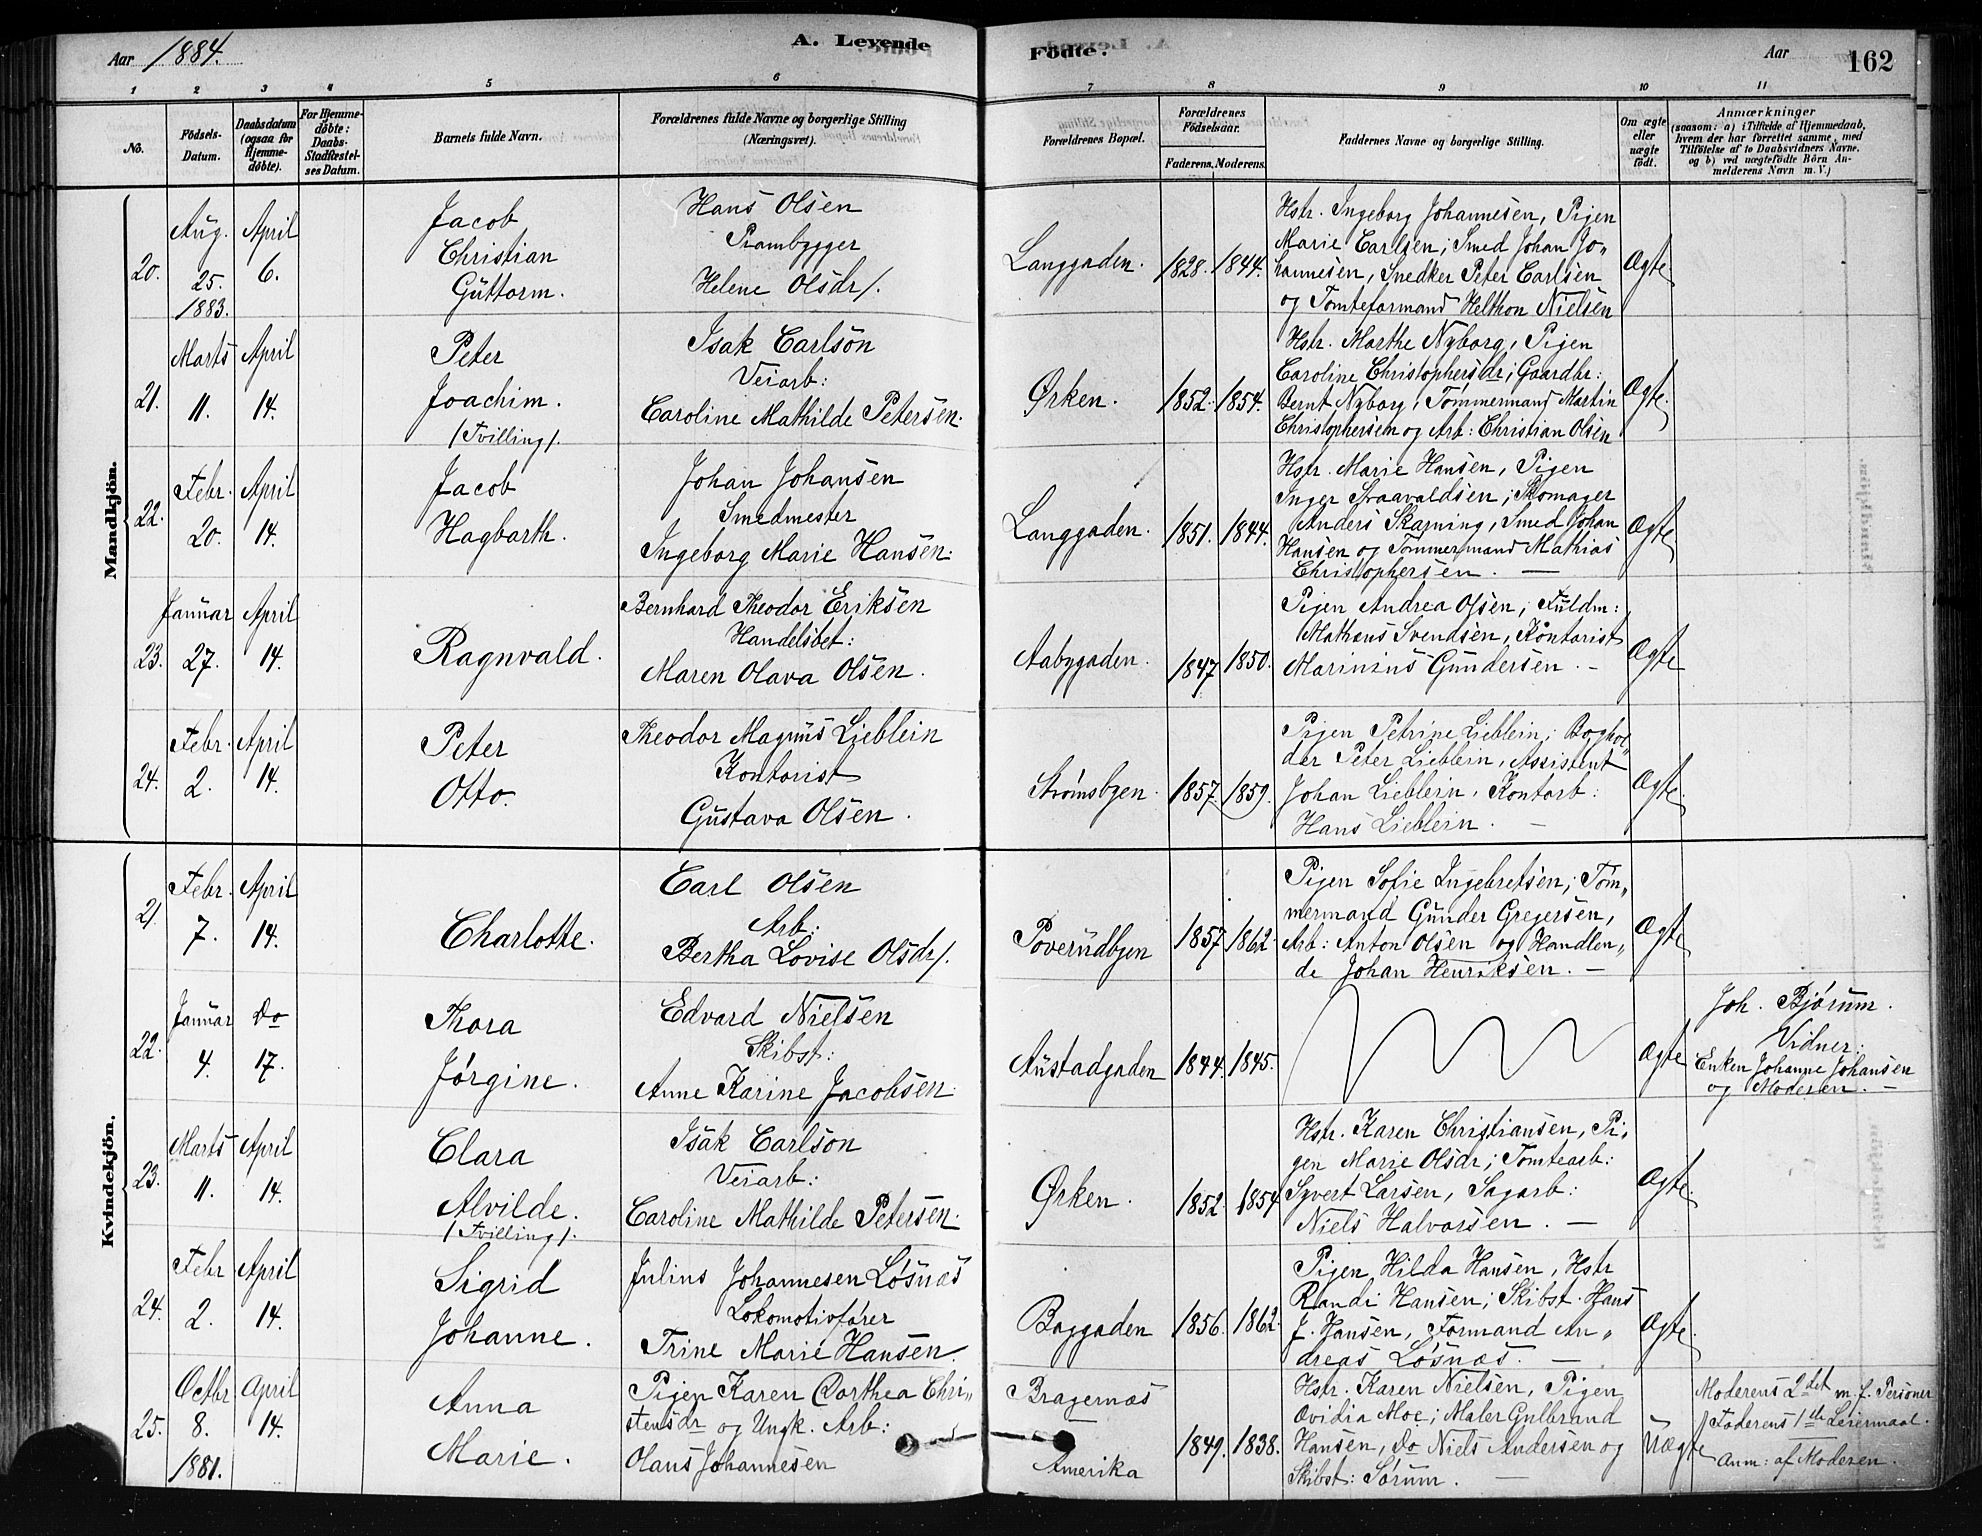 Aar 1884.
A. Levende
Födte.
Aar
162
1 2 3 4 5 6 7 8 9 10 11
No.
Födsels-Datum.
Daabsdatum (ogsaa for Hjemme-døbte).
For Hjemme-døbte: Daabs-Stadfæstel-ses Datum.
Barnets fulde Navn.
Forældrenes fulde Navne og borgerlige Stilling (Næringsvei).
Forældrenes Bopæl.
Forældrenes Födselsaar.
Faderens. Moderens.
Faddernes Navne og borgerlige Stilling.
Om ægte eller uægte födt.
Anmærkninger
(saasom: a) i Tilfælde af Hjemmedaab,
hvem der har forrettet samme, med
Tilföielse af to Daabsvidners Navne.
og b) ved uægtefödte Börn An-
melderens Navn m. V.)
Mandkjön.
20.
Aug. 25. 1883.
April 6.
Jacob
Christian
Guttorm.
Hans Olsen
Prambygger
Helene Olsdr/.
Langgaden.
1828. 1844.
Hstr. Ingeborg Johannesen, Pigen
Marie Carlsen; Smed Johan Jo-
hannesen, Snedker Peter Carlsen
og Tomteformand Helthon Nielsen
Ægte.
21.
Marts 11.
April 14.
Peter
Joachim.
/Tvilling/.
Isak Carlson
Veiarb:
Caroline Mathilde Petersen.
Ørken.
1852. 1854.
Hstr. Marthe Nyborg, Pigen
Caroline Christophersdr; Gaardbr:
Bernt Nyborg, Tömmermand Martin
Christophersen og Arb: Christian Olsen
Ægte.
22.
Febr. 20.
April 14.
Jacob
Hagbarth.
Johan Johansen
Smedmester
Ingeborg Marie Hansen.
Langgaden.
1851. 1844.
Hstr. Marie Hansen, Pigen
Inger Traavaldsen; Skomager
Anders Skarning, Smed Johan
Hansen og Tömmermand Mathias
Christophersen. —
Ægte
23.
Januar 27.
April 14.
Ragnvald.
Bernhard Theodor Eriksen
Handelsbet:
Maren Olava Olsen.
Aabygaden.
1847 1850.
Pigen Andrea Olsen; Fuldm:
Matheus Svendsen, Kontorist
Marinius Gundersen. —
Ægte
24.
Febr. 2.
April 14.
Peter
Otto.
Theodor Magnus Lieblein
Kontorist
Gustava Olsen.
Strømsbyen.
1857. 1859.
Pigen Petrine Lieblein; Boghol-
der Peter Lieblein, Assistent
Johan Lieblein, Kontorb:
Hans Lieblein. —
Ægte.
Kvindekjön.
21.
Febr. 7.
April 14.
Charlotte.
Carl Olsen
Arb:
Bertha Lovise Olsdr/.
Poverudbyen
1857 1862.
Pigen Sofie Ingebretsen; Töm-
mermand Gunder Gregersen,
Arb: Anton Olsen og Handlen-
de Johan Henriksen. —
Ægte
22.
Januar 4.
Do 17.
Thora
Jörgine.
Edvard Nielsen
Skibst:
Anne Karine Jacobsen.
Austadgaden
1844. 1845.
Ægte
Joh. Bjørum.
Vidner:
Enken Johanne Johansen
og Moderen. —
23.
Marts 11.
April 14.
Clara
Alvilde.
/Tvilling/.
Isak Carlson
Veiarb:
Caroline Mathilde Petersen.
Ørken.
1852. 1854
Hstr. Karen Christiansen, Pi-
gen Marie Olsdr; Tomtearb:
Syvert Larsen, Sagarb:
Niels Halvorsen. —
Ægte.
24.
Febr 2.
April 14.
Sigrid
Johanne.
Julius Johannesen Løsnæs
Lokomotivfører
Trine Marie Hansen.
Baggaden
1856. 1862.
Pigen Hilda Hansen, Hstr
Randi Hansen; Skibst. Hans
J. Hansen, Formand An-
dreas Løsnæs. —
Ægte.
25.
Octbr 8. 1881.
April 14.
Anna
Marie.
Pigen Karen Dorthea Chri-
stensdr og Ungk. Arb:
Olaus Johannesen
Bragernæs
Amerika
1849. 1838.
Hstr. Karen Nielsen, Pigen
Ovidia Moe; Maler Gulbrand
Hansen, Do Niels Andersen og
Skibst: Sørum. —
Uægte
Moderens 2det m. f. Personer
Faderens 1ste Leiermaal.
Anm: af Moderen.